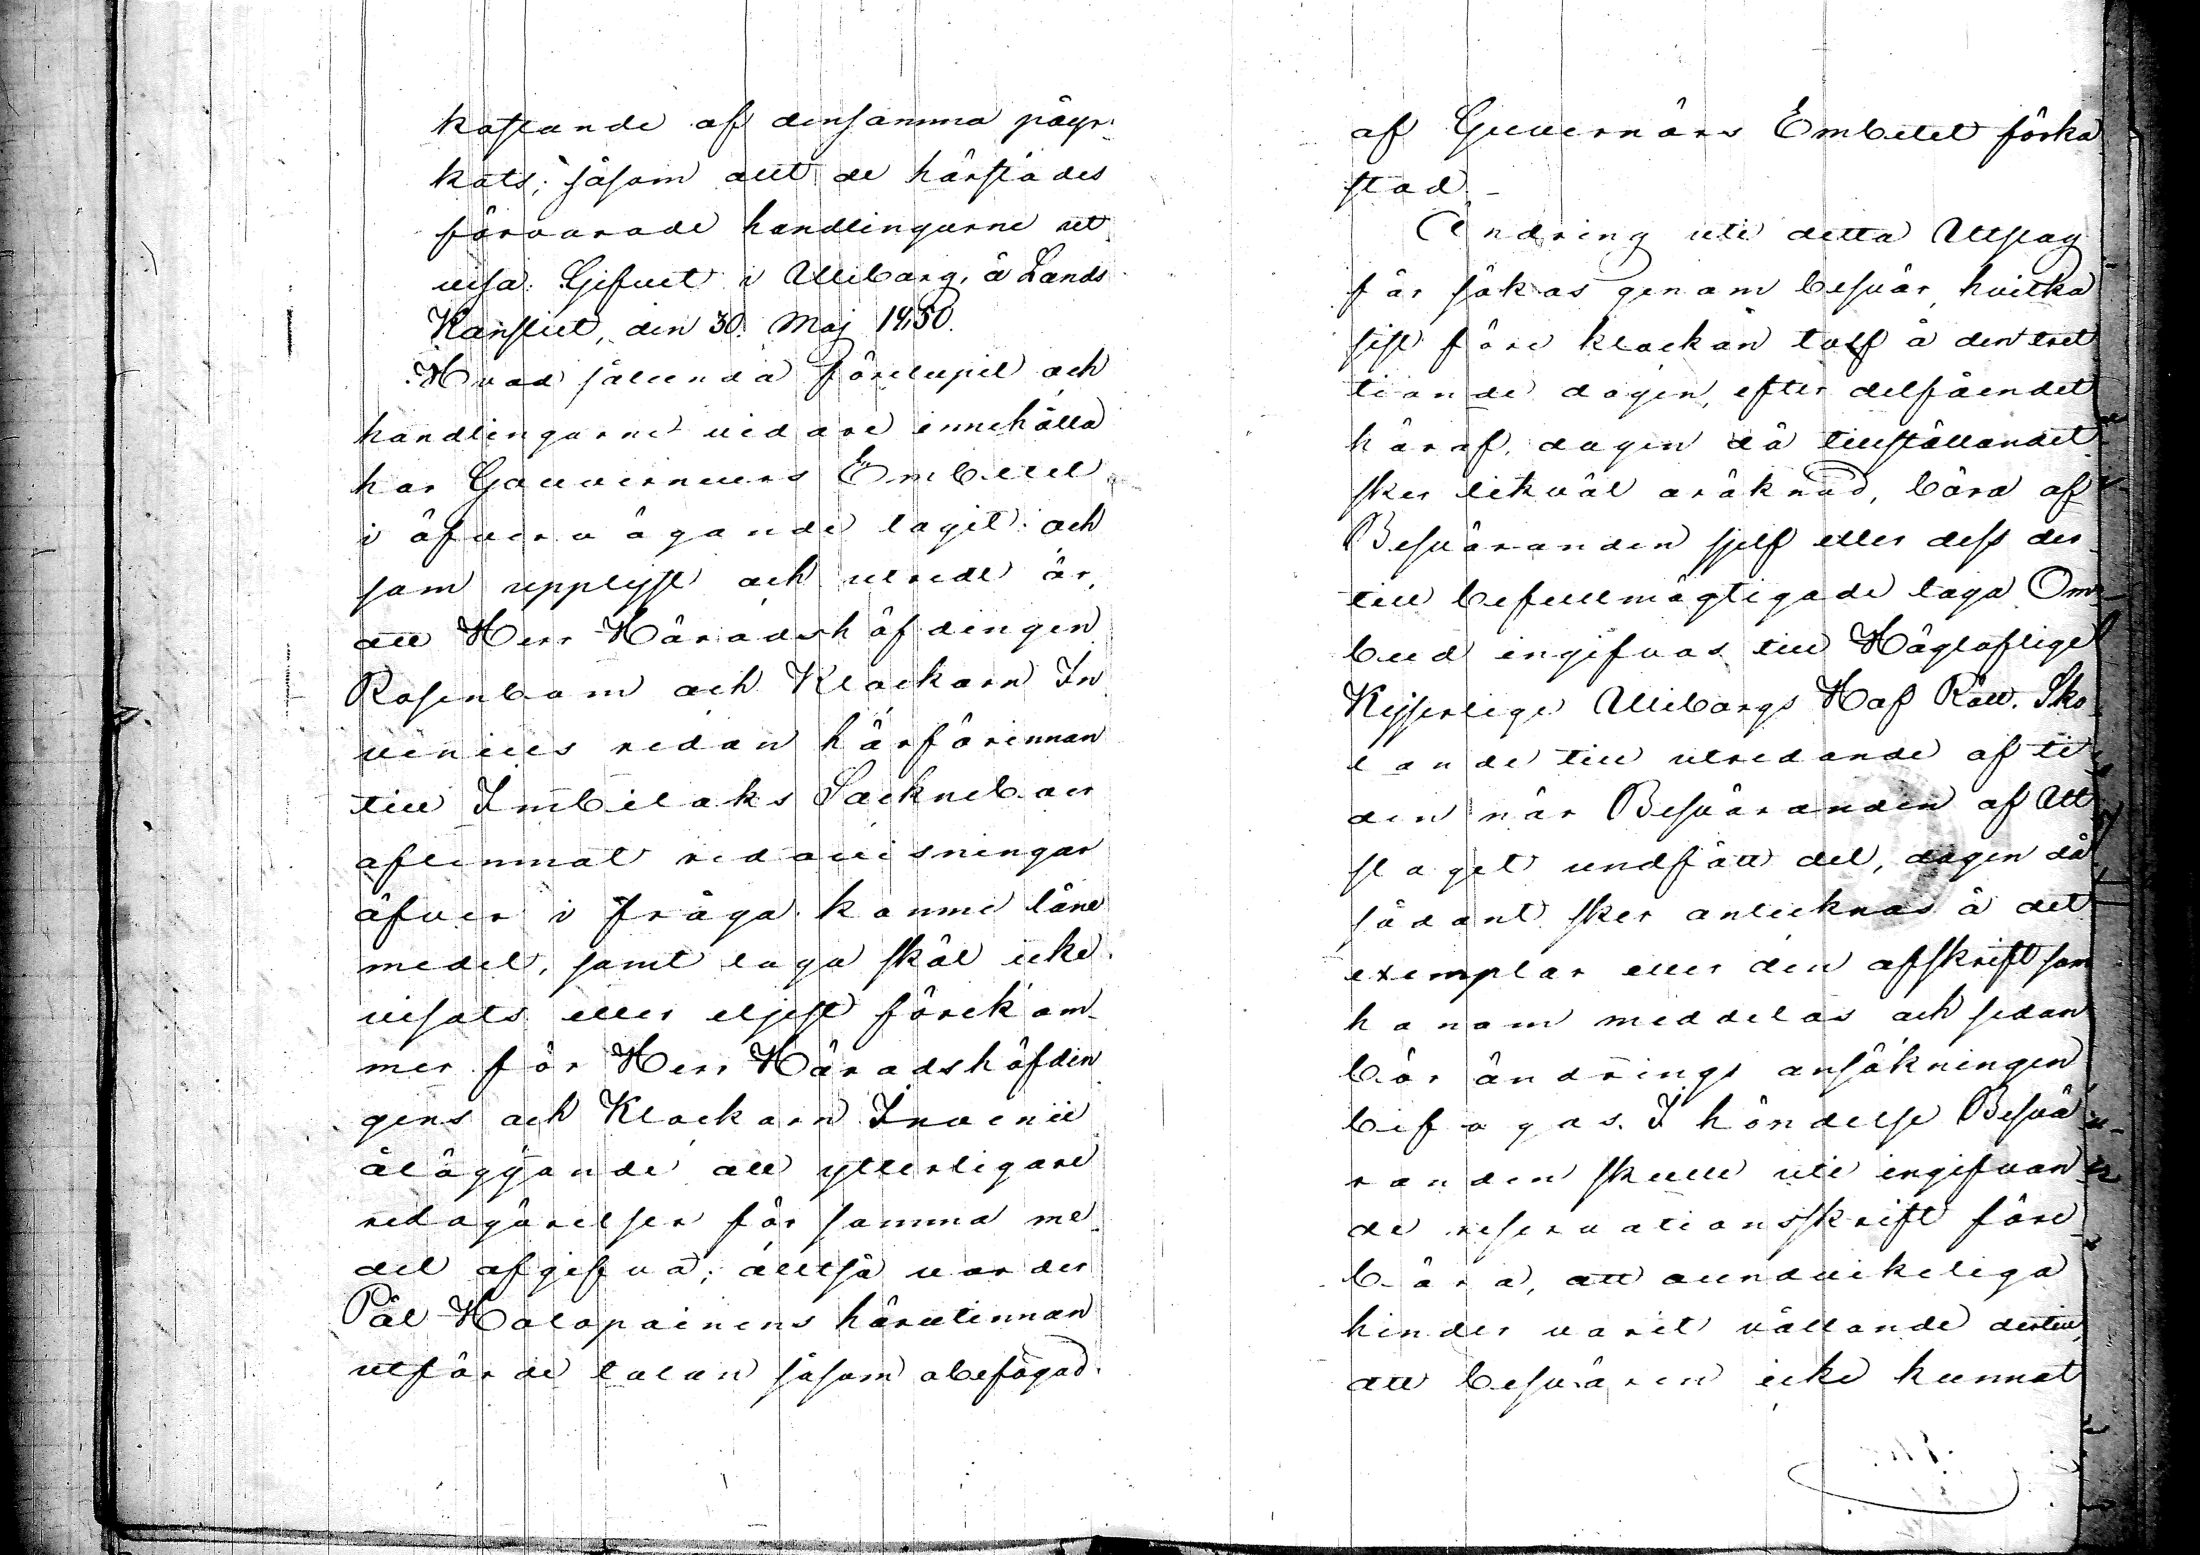 kastande af densamma påyr-
kats; såsom att de härstädes
förvarade handlingarne ut
visa. Gifvet i Wiborg, å Lands
Kansliet, den 30. Maj 1850.
Hvad sålunda förelupit och
handlingarne vidare innehålla
har Gouverneurs Embetet
i öfvervägande tagit; och
som upplyst och utredt är,
att Herr Häradshöfdingen
Rosenbom och Klockarn In
venius redan härförinnan
till Imbilaks Sockneboer
aflemnat redovisningar
öfver i fråga komne låne
medel, samt laga skäl icke
visats eller eljest förekom-
mer för Herr Häradshöfdin
gens och Klockarn Invenii
åläggande att ytterligare
redogörelser för samma me
del afgifva; alltså varder
Pål Holopainens härutinnan
utförde talan såsom obefogad
af Guvernörs Embetet förka
stad.-
Ändring uti detta Utslag
får sökas genom besvär, hvilka
sist före klockan tolf å den tret
tionde dagen, efter delfåendet
häraf, dagen då tillställandet
sker likväl oräknad, böra af
Besväranden sjelf eller dess der
till befullmägtigade laga Om-
bud ingifvas till Högloflige
Kejserlige Wiborgs Hof Rätt. Sko
lande till utredande af ti
den när Besväranden af Ut
slaget undfått del, dagen då
sådant sker antecknas å det
exemplar eller den afskrift som
honom meddelas och sedan
bör ändrings ansökningen
bifogas. I händelse Besvä
randen skulle uti ingifvan
de reservationsskrift före
bära, att oundvikeliga
hinder varit vållande dertill,
att besvären icke kunnat